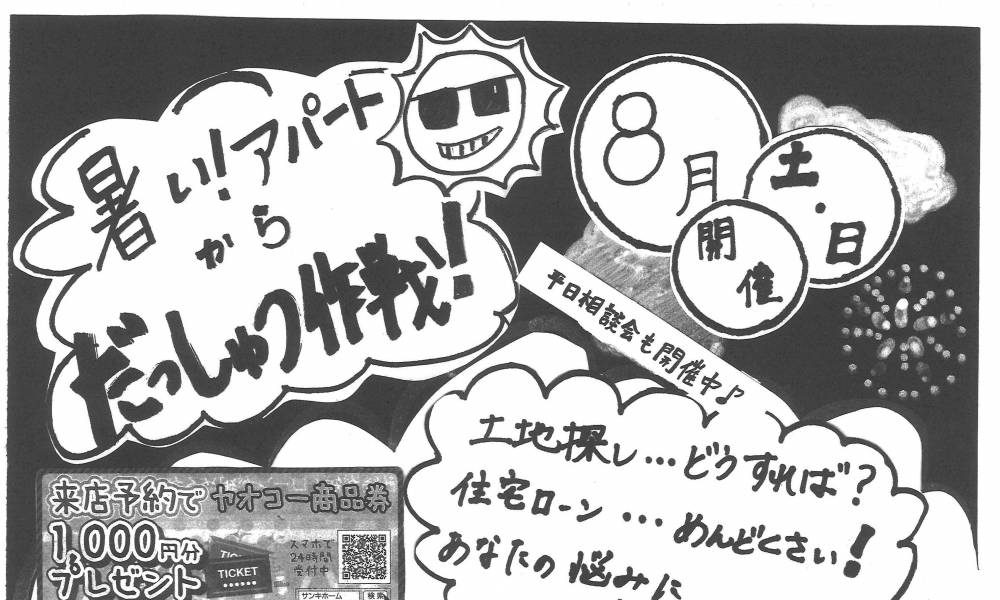 暑い!アパート
から
だっしゅつ作戦!
8月
土・日
開催
平日相談会も開催中♪
土地探し…どうすれば?
住宅ローン…めんどくさい!
あなたの悩みに
来店予約でヤオコー商品券
1,000円分
プレゼント
TICKET
スマホで
24時間
受付中
サンキホーム 検索